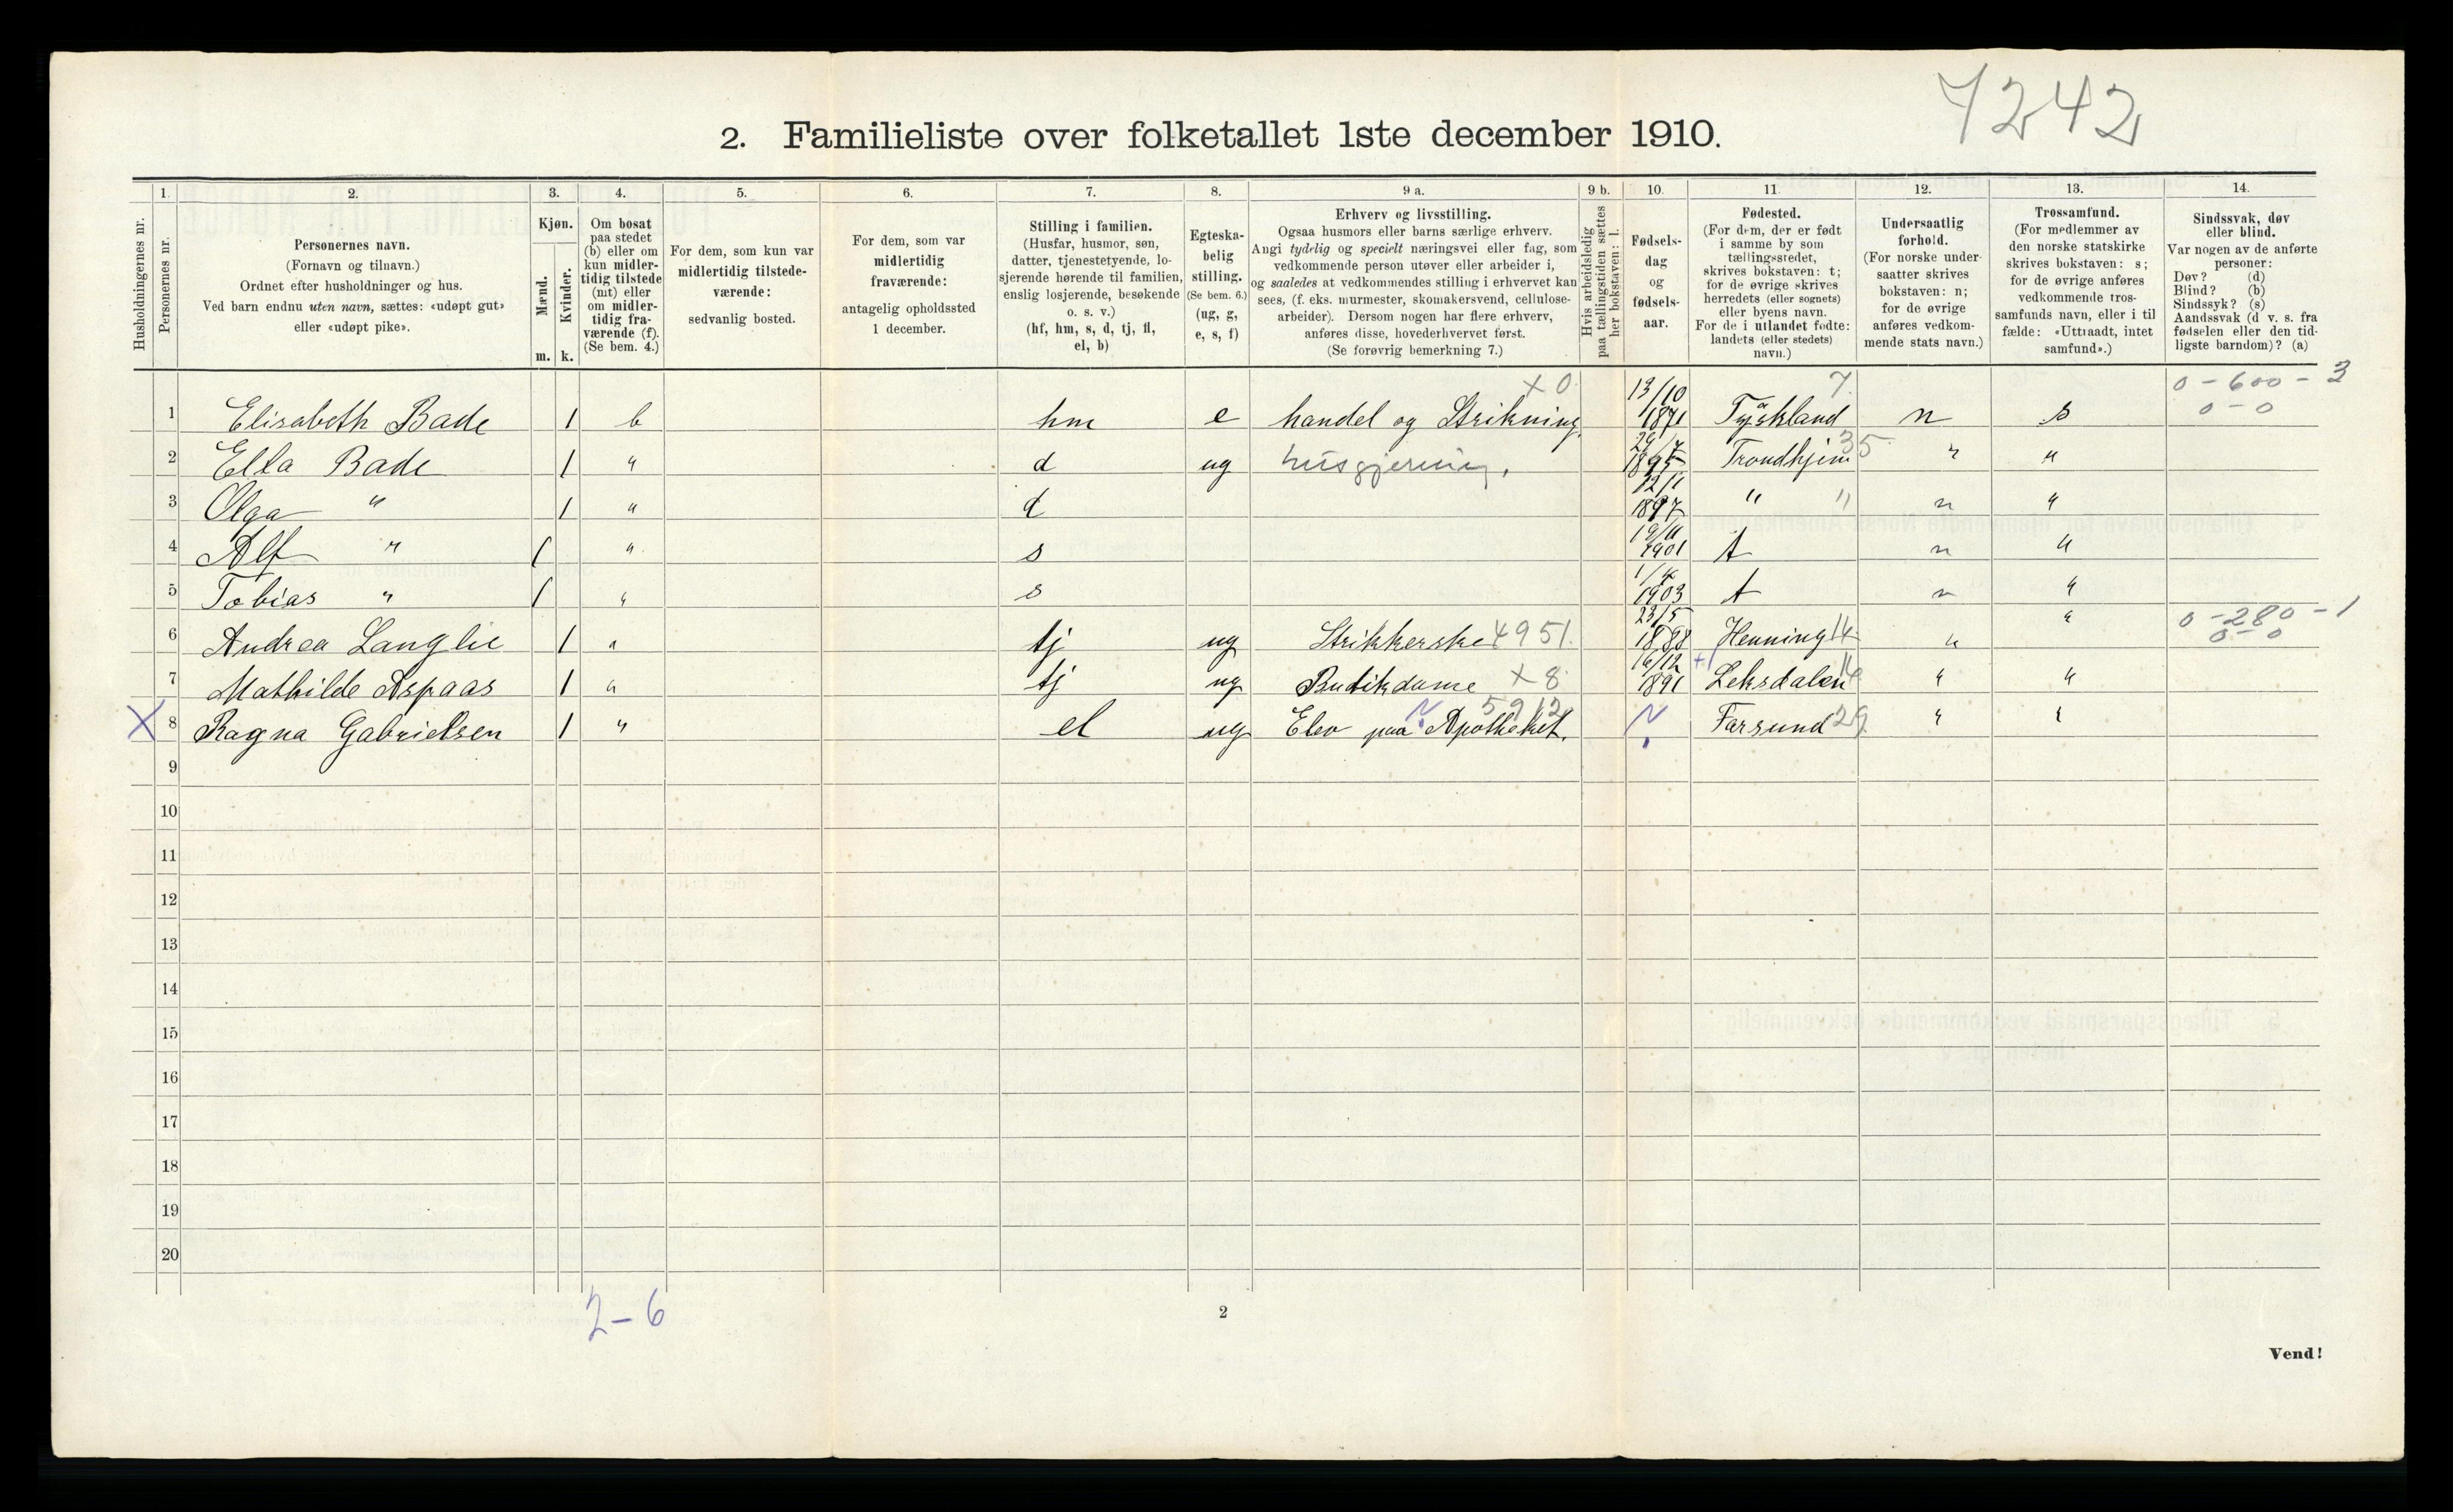 7242
2. Familieliste over folketallet 1ste december 1910.
1. 2. 3. 4. 5. 6. 7. 8. 9 a. 9 b. 10. 11. 12. 13. 14.
Husholdningernes nr.
Personernes nr.
Personernes navn.
(Fornavn og tilnavn.)
Ordnet efter husholdninger og hus.
Ved barn endnu uten navn, sættes: «udøpt gut»
eller «udøpt pike».
Kjøn.
Mænd.
Kvinder.
m. k.
Om bosat
paa stedet
(b) eller om
kun midler-
tidig tilstede
(mt) eller
om midler-
tidig fra-
værende (f).
(Se bem. 4.)
For dem, som kun var
midlertidig tilstede-
værende:
sedvanlig bosted.
For dem, som var
midlertidig
fraværende:
antagelig opholdssted
1 december.
Stilling i familien.
(Husfar, husmor, søn,
datter, tjenestetyende, lo-
sjerende hørende til familien,
enslig losjerende, besøkende
o. s. v.)
(hf, hm, s, d, tj, fl,
el, b)
Egteska-
belig
stilling.
(Se bem. 6.)
(ug, g,
e, s, f)
Erhverv og livsstilling.
Ogsaa husmors eller barns særlige erhverv.
Angi tydelig og specielt næringsvei eller fag, som
vedkommende person utøver eller arbeider i,
og saaledes at vedkommendes stilling i erhvervet kan
sees, (f. eks. murmester, skomakersvend, cellulose-
arbeider). Dersom nogen har flere erhverv,
anføres disse, hovederhvervet først.
(Se forøvrig bemerkning 7.)
Hvis arbeidsledig
paa tællingstiden sættes
her bokstaven: l.
Fødsels-
dag
og
fødsels-
aar.
Fødested.
(For dem, der er født
i samme by som
tællingsstedet,
skrives bokstaven: t;
for de øvrige skrives
herredets (eller sognets)
eller byens navn.
For de i utlandet fødte:
landets (eller stedets)
navn.)
Undersaatlig
forhold.
(For norske under-
saatter skrives
bokstaven: n;
for de øvrige
anføres vedkom-
mende stats navn.)
Trossamfund.
(For medlemmer av
den norske statskirke
skrives bokstaven: s;
for de øvrige anføres
vedkommende tros-
samfunds navn, eller i til
fælde: «Uttraadt, intet
samfund».)
Sindssvak, døv
eller blind.
Var nogen av de anførte
personer:
Døv? (d)
Blind? (b)
Sindssyk? (s)
Aandssvak (d v. s. fra
fødselen eller den tid-
ligste barndom)? (a)
1 Elisabeth Bade 1 b hm e handel og Strikning × 0 13/10 1871 Tyskland 7 n s 0 - 600 - 3 0 - 0
2 Ella Bade 1 " d ug husgjerning. 1895 Trondhjem 35 " "
3 Olga " 1 " d 12/11 1897 " " n "
4 Alf " 1 " s 1901 t n "
5 Tobias " 1 " s 1903 t n "
6 Andrea Langlie 1 " tj ug Strikkerske 4951. 23/5 1888 Henning 14 " " 0 - 280 - 1 0 - 0
7 Mathilde Aspaas 1 " tj ug Butikdame × 8 16/12 1891 Leksdalen " "
X 8 Ragna Gabrielsen 1 " el ug Elev paa Apotheket. 5912 Farsund 29 " "
9
10
11
12
13
14
15
16
17
18
19
20
2-6
2
Vend!